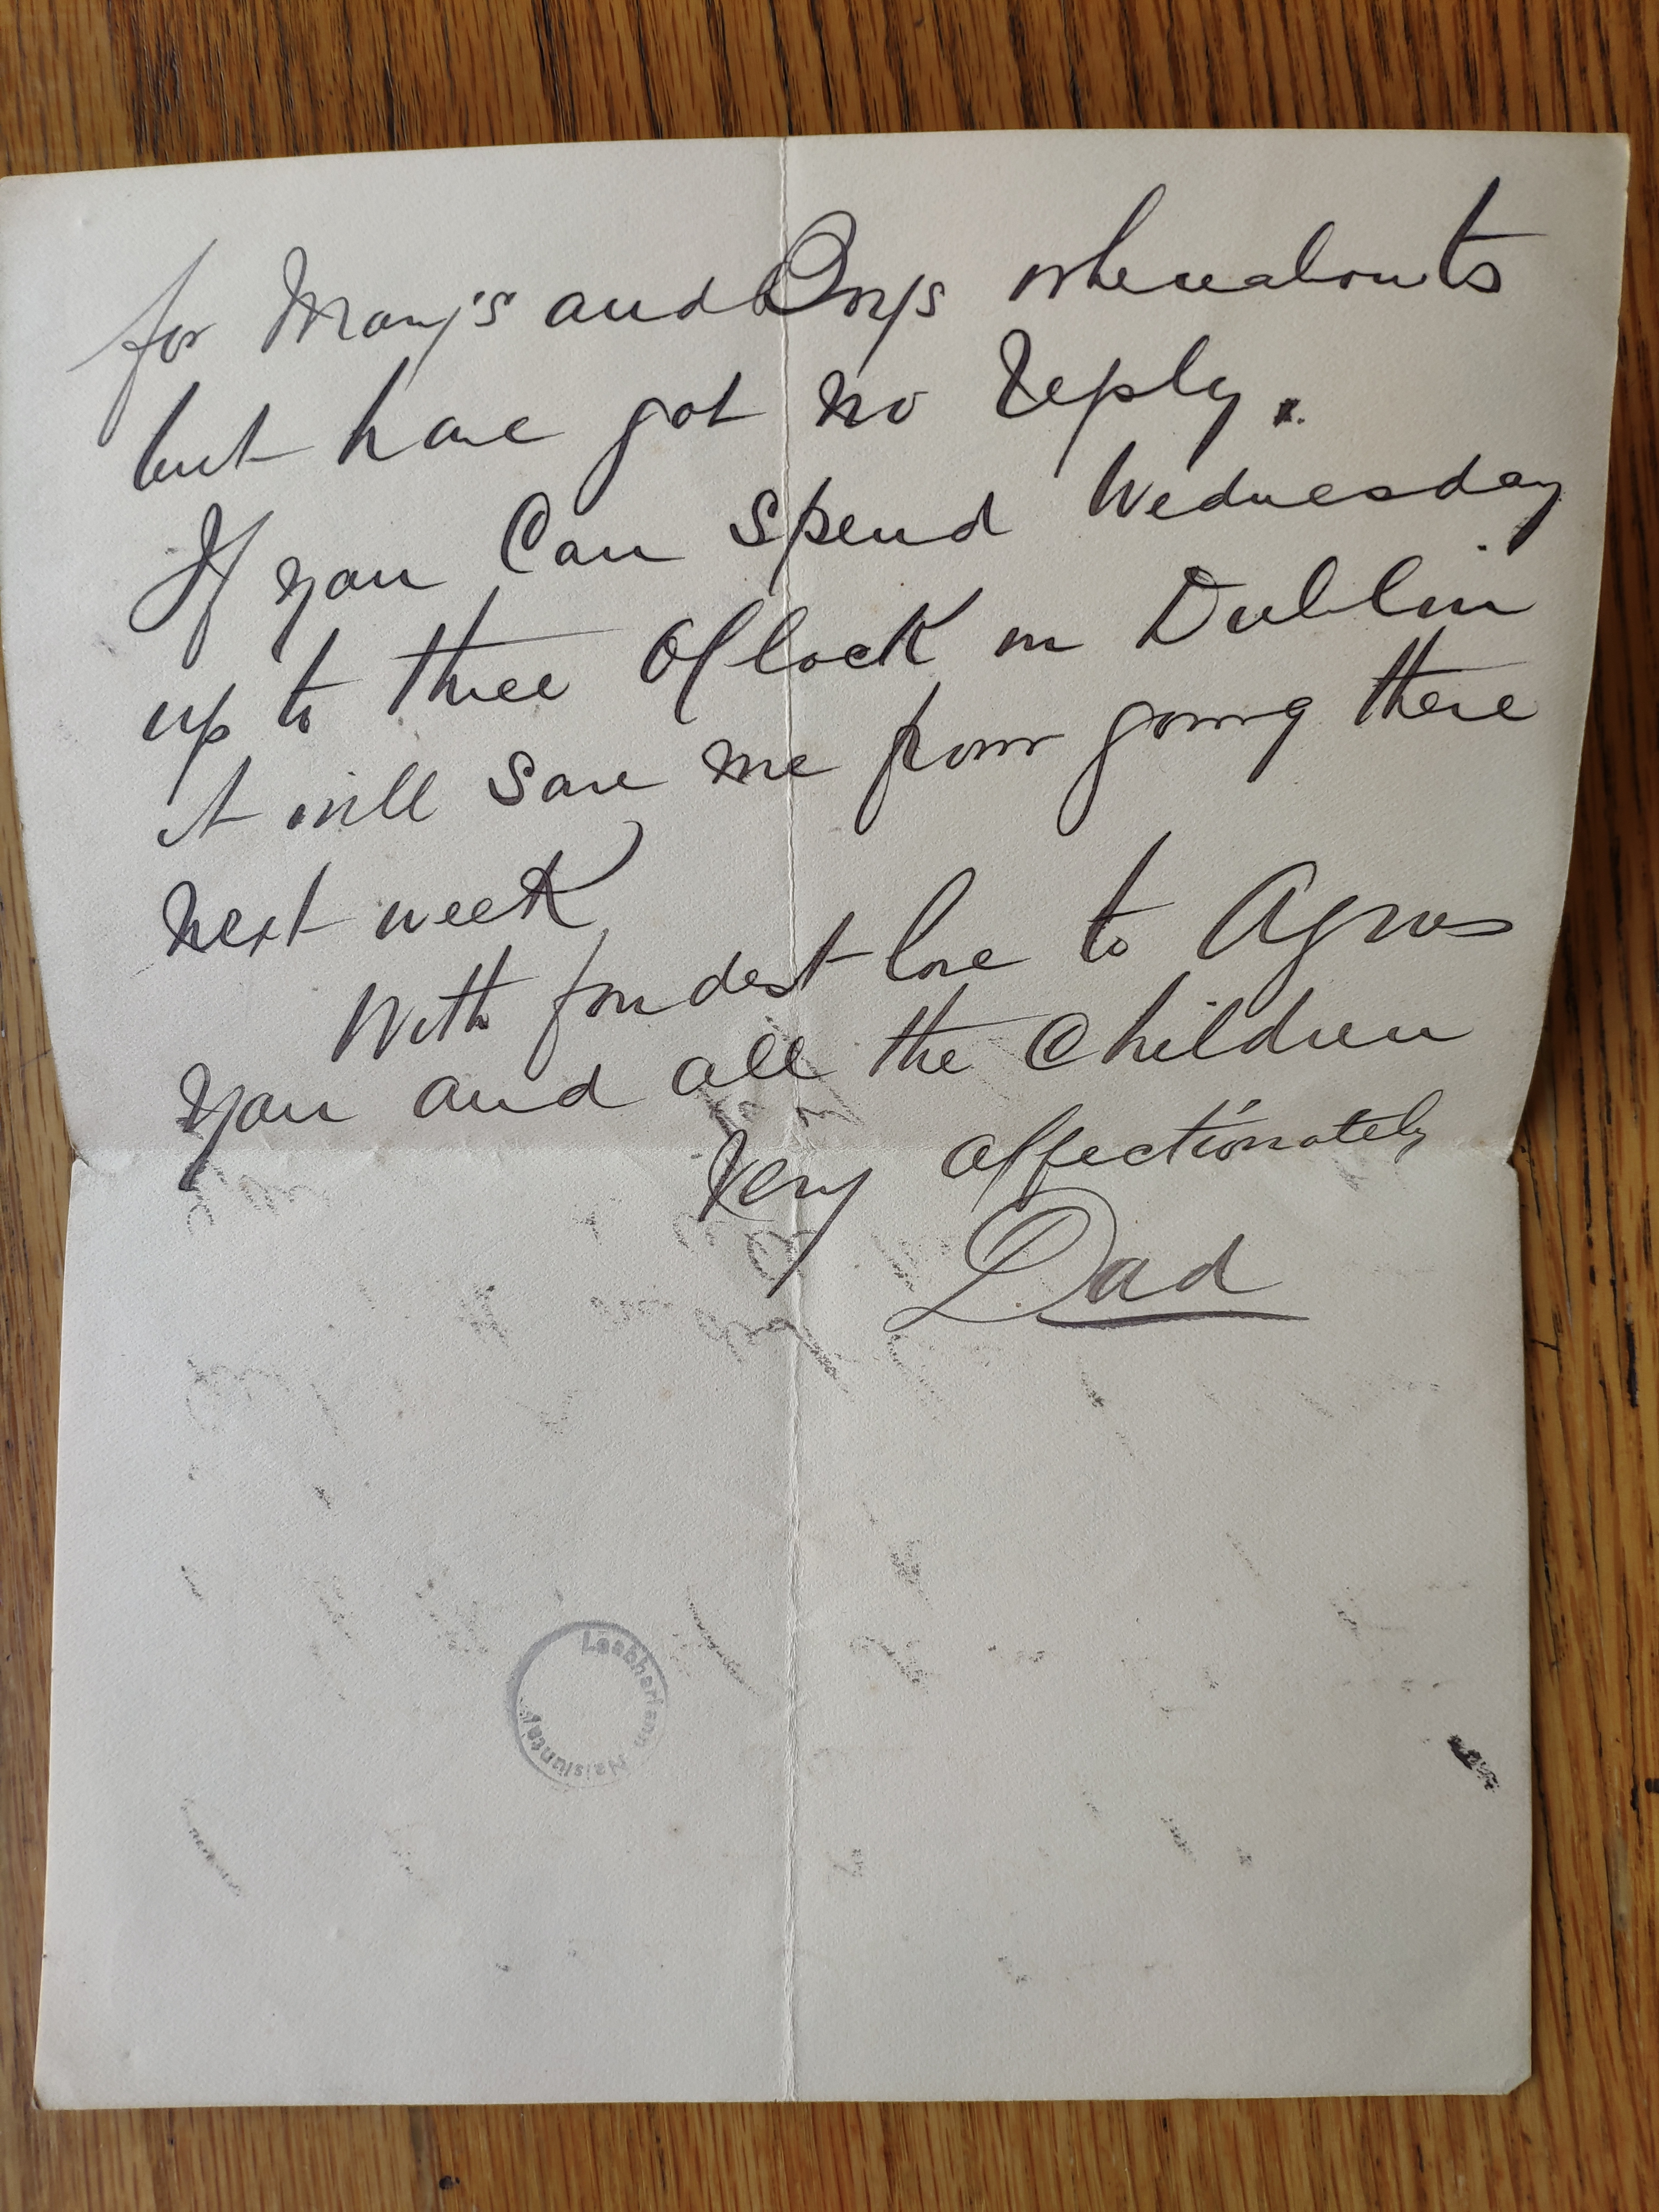 for Mary's and Orys whereabouts
but have got no reply.
If you Can spend Wednesday
up to three O'Clock in Dublin
it will save me from going there
next week
With fondest love to Agnes
you and all the Children
Very affectionately
Dad
Leabharlann Naisiunta